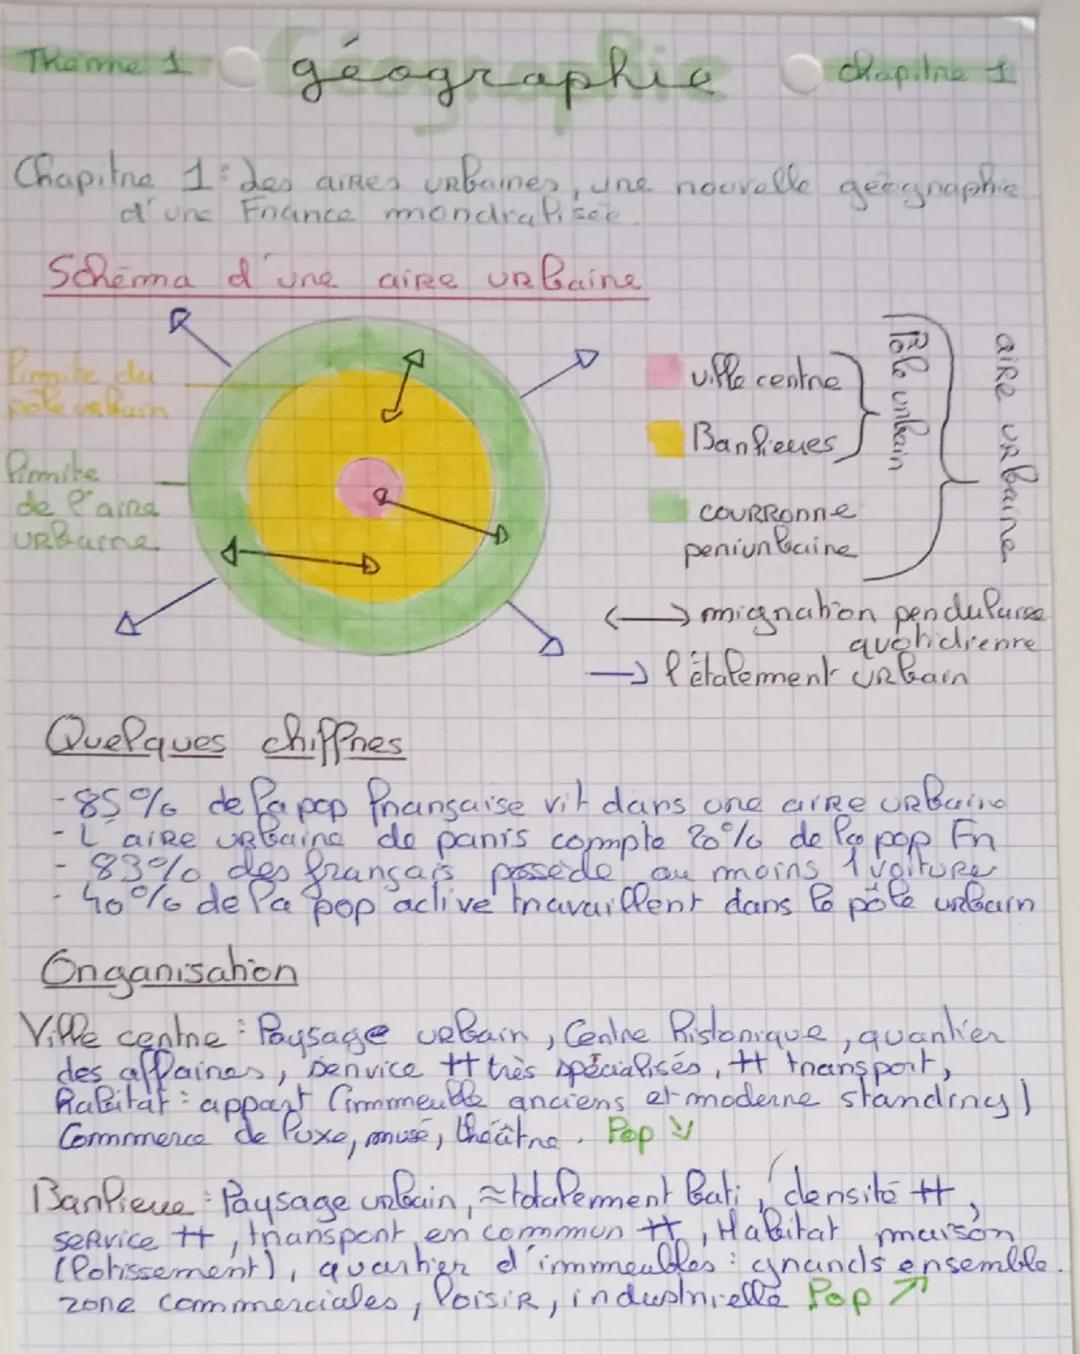 Thème 1 géographie chapitre 1
Chapitre 1 : des aires urbaines, une nouvelle géographie
d'une France mondialisée.
Schéma d'une aire urbaine
limite du
pôle urbain
limite
de l'aire
urbaine
ville centre
Banlieues
courronne
periurbaine
Pôle urbain
aire urbaine
<—> migration pendulaire
quotidienne
—> l'étalement urbain
Quelques chiffres
- 85% de la pop française vit dans une aire urbaine
- L'aire urbaine de paris compte 20% de la pop Fr
- 83% des français possède au moins 1 voiture
- 40% de la pop active travaillent dans le pôle urbain
Organisation
Ville centre : Paysage urbain, Centre historique, quartier
des affaires, service ++ très spécialisés, ++ transport,
habitat : appart (immeuble anciens et moderne standing)
Commerce de luxe, musé, théâtre. Pop ↘
Banlieue : Paysage urbain, ≈ totalement bati, densité ++,
service ++, transport en commun ++, Habitat maison
(lotissement), quartier d'immeubles : grands ensemble.
zone commerciales, loisir, industrielle Pop ↗